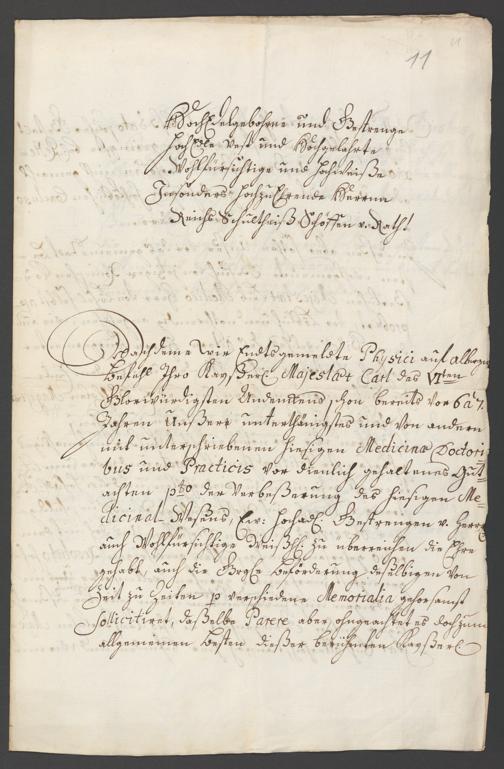 11
HochEdelgebohrne und Gestrenge
HochEdle Vest und Hochgelahrte
Wohlfürsichtige und hochweiße
Insonders Hochzuehrende Herren
Reichs Schultheiß Schöffen v. Rath!
Nachdeme wir Endtsgemeldte Physici auf
Befehl Ihro Kayßerl. Majestaet Carl des VIten
Glorwürdigsten Andenckens schon bereits vor 6 a 7.
Jahren Unßere unterthänigstes und von andern
mit unterschriebenen hiesigen Medicinae Doctori
bus und Practicis vor dienlich gehaltenes Gut
achten pto der Verbeßerung des hiesigen Me-
dicinal-Weßens, Ew: Hochadl. Gestrengen v. Herrl.
auch Wohlfürsichtige Weißh. zu überreichen die Ehre
gehabt, auch die Beförderung deßelbigen von
Zeit zu Zeiten p verschiedene Memorialia gehorsamst
sollicitiret, daßelbe aber, ohngeachtet es doch zum
allgemeinen Besten dießer berühmten Kayßerl.